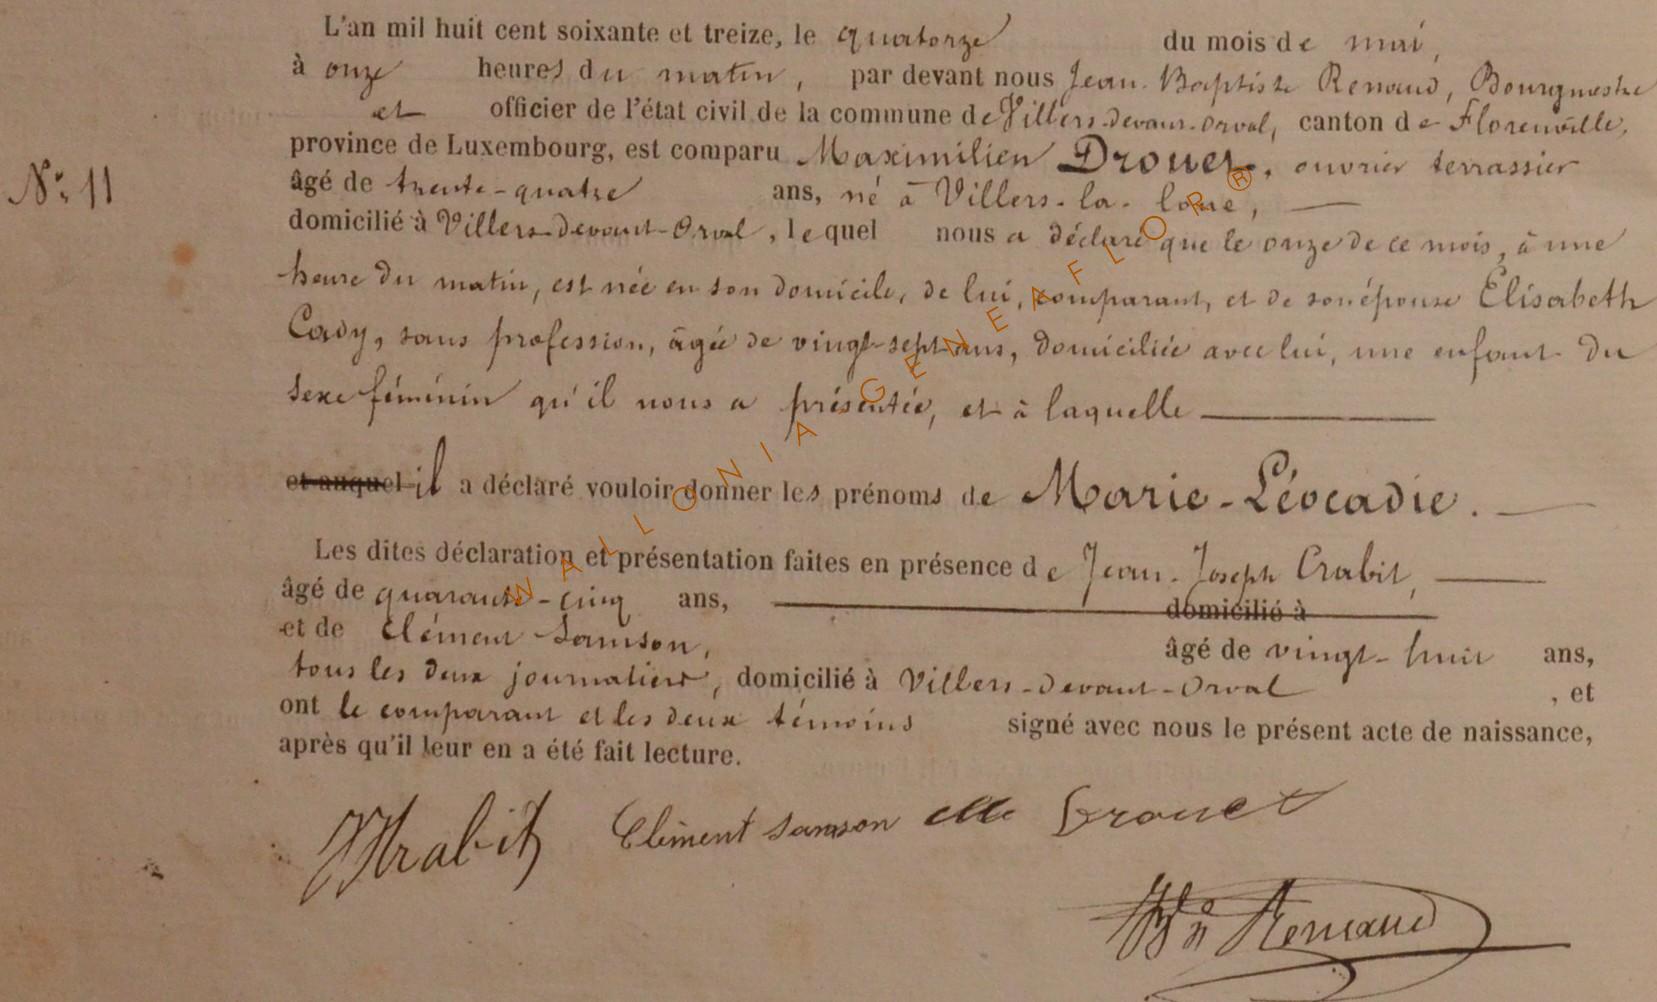 L'an mil huit cent soixante et treize, le quatorze du mois de mai,
à onze heures du matin, par devant nous Jean-Baptiste Renaud, Bourgmestre
et officier de l'état civil de la commune de Villers-devant-Orval, canton de Florenville,
province de Luxembourg, est comparu Maximilien Drouet, ouvrier terrassier
N° 11
âgé de trente-quatre ans, né à Villers-la-loue,
domicilié à Villers-devant-Orval, lequel nous a déclaré que le onze de ce mois, à une
heure du matin, est née en son domicile, de lui, comparant, et de son épouse Elisabeth
Cady, sans profession, âgée de vingt-sept ans, domiciliée avec lui, une enfant du
sexe féminin qu'il nous a présentée, et à laquelle
et auquel il a déclaré vouloir donner les prénoms de Marie-Léocadie.
Les dites déclaration et présentation faites en présence de Jean-Joseph Crabit,
âgé de quarante-cinq ans, domicilié à
et de Clément Samson, âgé de vingt-huit ans,
tous les deux journaliers, domicilié à Villers-devant-Orval, et
ont le comparant et les deux témoins signé avec nous le présent acte de naissance,
après qu'il leur en a été fait lecture.
Crabit Clément Samson Drouet
Renaud
WALLONIA GENEAFLOR®